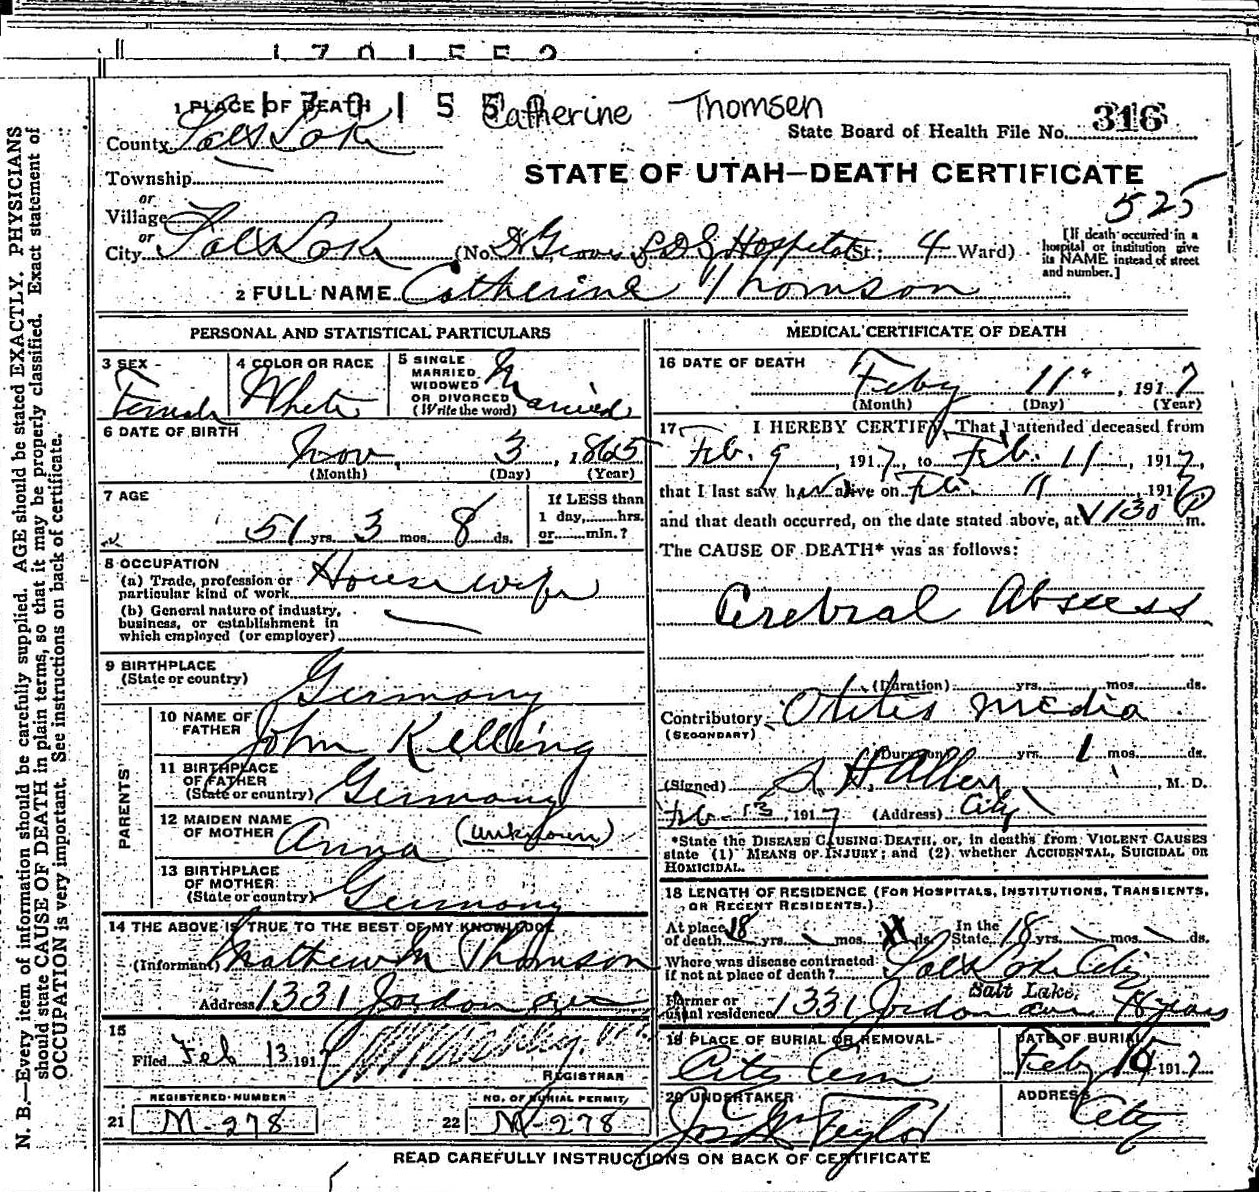 1701552
1 PLACE OF DEATH 170155
Catherine Thomsen
State Board of Health File No. 316
County Salt Lake
STATE OF UTAH—DEATH CERTIFICATE
Township
or
525
Village
or
City Salt Lake (No. Groves L D S Hospital St.; 4 Ward)
[If death occurred in a
hospital or institution give
its NAME instead of street
and number.]
2 FULL NAME Catherine Thomson
PERSONAL AND STATISTICAL PARTICULARS
3 SEX Female
4 COLOR OR RACE White
5 SINGLE
MARRIED
WIDOWED
OR DIVORCED
(Write the word) Married
6 DATE OF BIRTH
Nov, 3, 1865
(Month) (Day) (Year)
7 AGE
51 yrs. 3 mos. 8 ds.
If LESS than
1 day,......hrs.
or......min.?
8 OCCUPATION
(a) Trade, profession or
particular kind of work Housewife
(b) General nature of industry,
business, or establishment in
which employed (or employer)
9 BIRTHPLACE
(State or country) Germany
PARENTS
10 NAME OF
FATHER John Kelling
11 BIRTHPLACE
OF FATHER
(State or country) Germany
12 MAIDEN NAME
OF MOTHER Anna (unknown)
13 BIRTHPLACE
OF MOTHER
(State or country) Germany
14 THE ABOVE IS TRUE TO THE BEST OF MY KNOWLEDGE
(Informant) Mathew M Thomson
Address 1331 Jordon ave
15
Filed Feb 13 1917
REGISTRAR
REGISTERED NUMBER
21 M-278
NO. OF BURIAL PERMIT
22 M-278
MEDICAL CERTIFICATE OF DEATH
16 DATE OF DEATH
Feby 11", 1917
(Month) (Day) (Year)
17 I HEREBY CERTIFY, That I attended deceased from
Feb. 9, 1917, to Feb. 11, 1917,
that I last saw her alive on Feb. 11, 1917
and that death occurred, on the date stated above, at 1130 P m.
The CAUSE OF DEATH* was as follows:
Cerebral Abscess
(Duration) yrs. mos. ds.
Contributory Otitis Media
(SECONDARY)
(Duration) yrs. 1 mos. ds.
(Signed) S. H. Allen, M. D.
Feb 13, 1917 (Address) City
*State the DISEASE CAUSING DEATH, or, in deaths from VIOLENT CAUSES
state (1) MEANS OF INJURY; and (2) whether ACCIDENTAL, SUICIDAL OR
HOMICIDAL.
18 LENGTH OF RESIDENCE (FOR HOSPITALS, INSTITUTIONS, TRANSIENTS,
OR RECENT RESIDENTS.)
At place
of death 18 yrs. mos. ds. In the
State 18 yrs. mos. ds.
Where was disease contracted
if not at place of death? Salt Lake City
Salt Lake,
Former or
usual residence 1331 Jordon ave 18 years
19 PLACE OF BURIAL OR REMOVAL
City Cem
DATE OF BURIAL
Feby 15 1917
20 UNDERTAKER
Jos Wm Taylor
ADDRESS
City
READ CAREFULLY INSTRUCTIONS ON BACK OF CERTIFICATE
N. B.—Every item of information should be carefully supplied. AGE should be stated EXACTLY. PHYSICIANS
should state CAUSE OF DEATH in plain terms, so that it may be properly classified. Exact statement of
OCCUPATION is very important. See instructions on back of certificate.